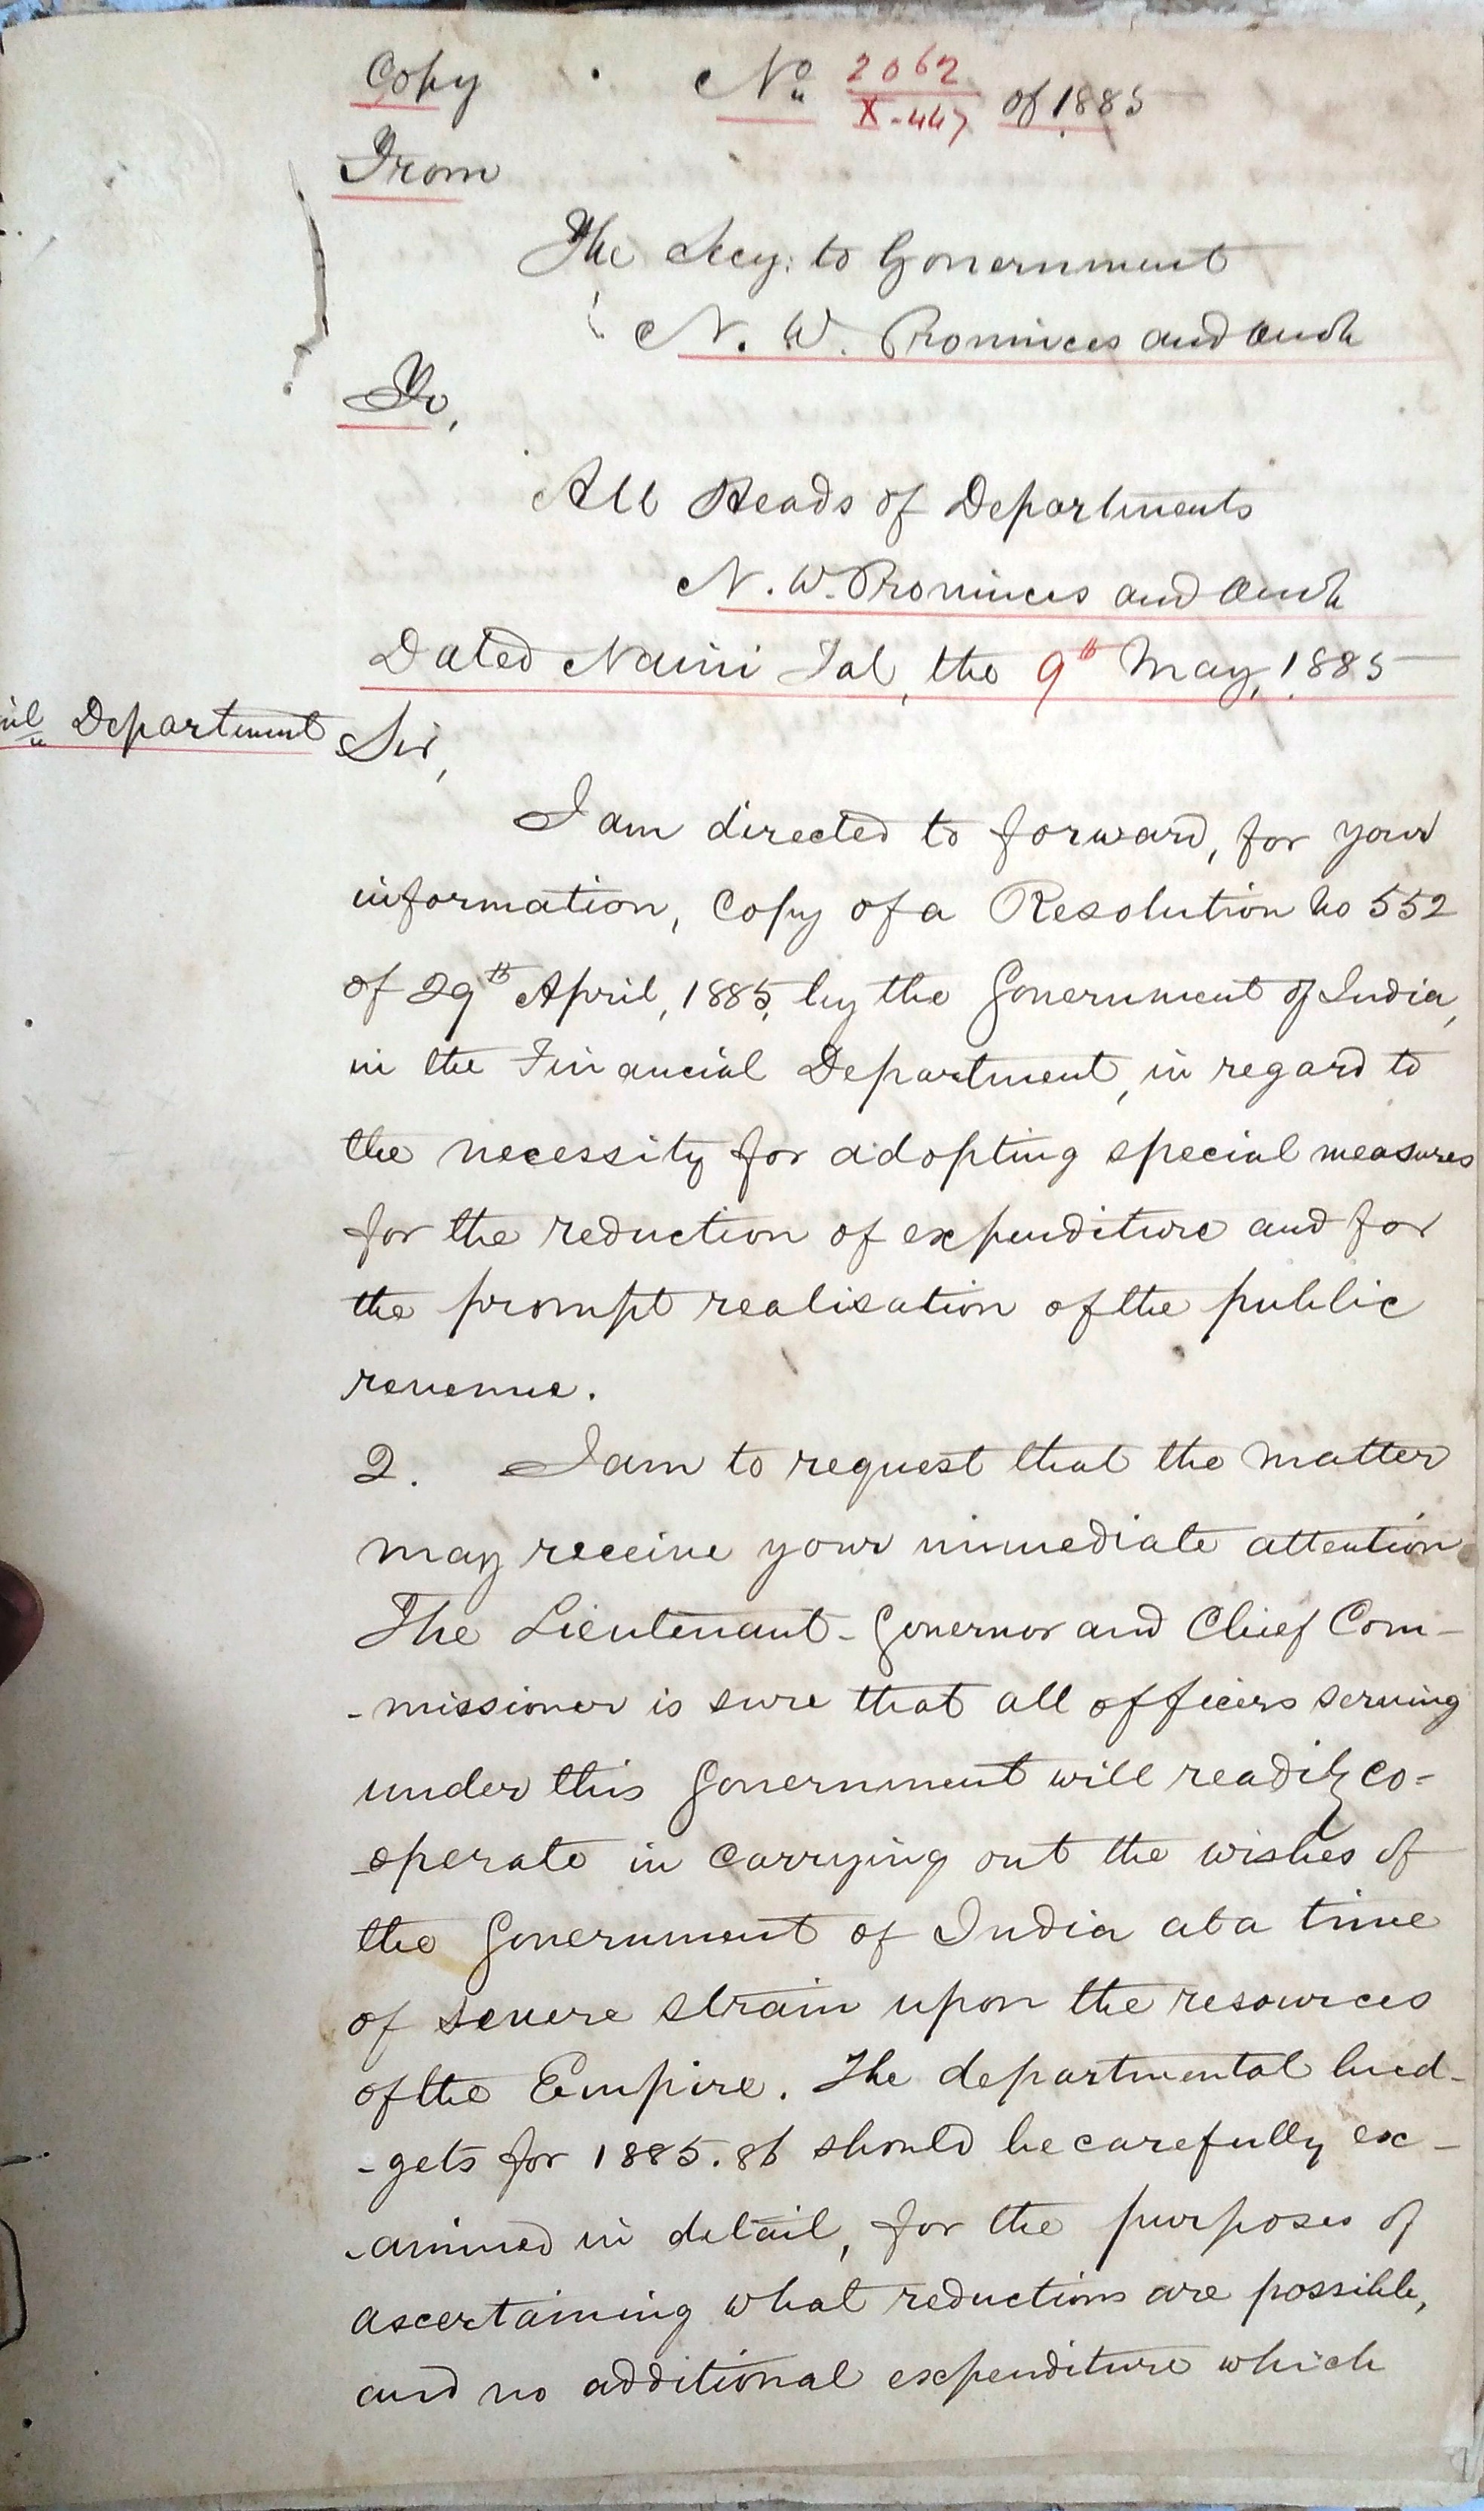 Copy No 2062/X-447 of 1885
From
The Secy: to Government
N. W. Provinces and Oudh
To,
All Heads of Departments
N. W. Provinces and Oudh
Dated Naini Tal, the 9th May, 1885
Department Sir,
I am directed to forward, for your
information, Copy of a Resolution No 552
of 29th April, 1885, by the Government of India,
in the Financial Department, in regard to
the necessity for adopting special measures
for the reduction of expenditure and for
the prompt realisation of the public
revenue.
2. I am to request that the matter
may receive your immediate attention
The Lieutenant-Governor and Chief Com-
-missioner is sure that all officers serving
under this Government will readily co-
-operate in carrying out the wishes of
the Government of India at a time
of severe strain upon the resources
of the Empire. The departmental bud-
-gets for 1885.86 should be carefully ex-
-amined in detail, for the purposes of
ascertaining what reductions are possible,
and no additional expenditure which